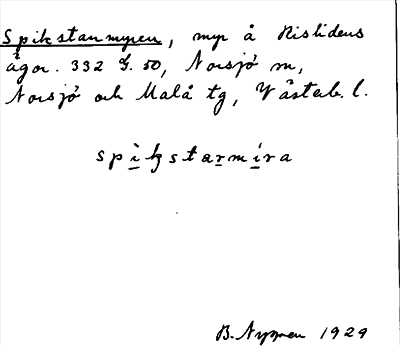 Spikstarmyren, myr å Rislidens
ägor. 332 G. 50, Norsjö sn,
Norsjö och Malå tg, Västerb. l.
spik̀starmìra
B. Nyman 1929